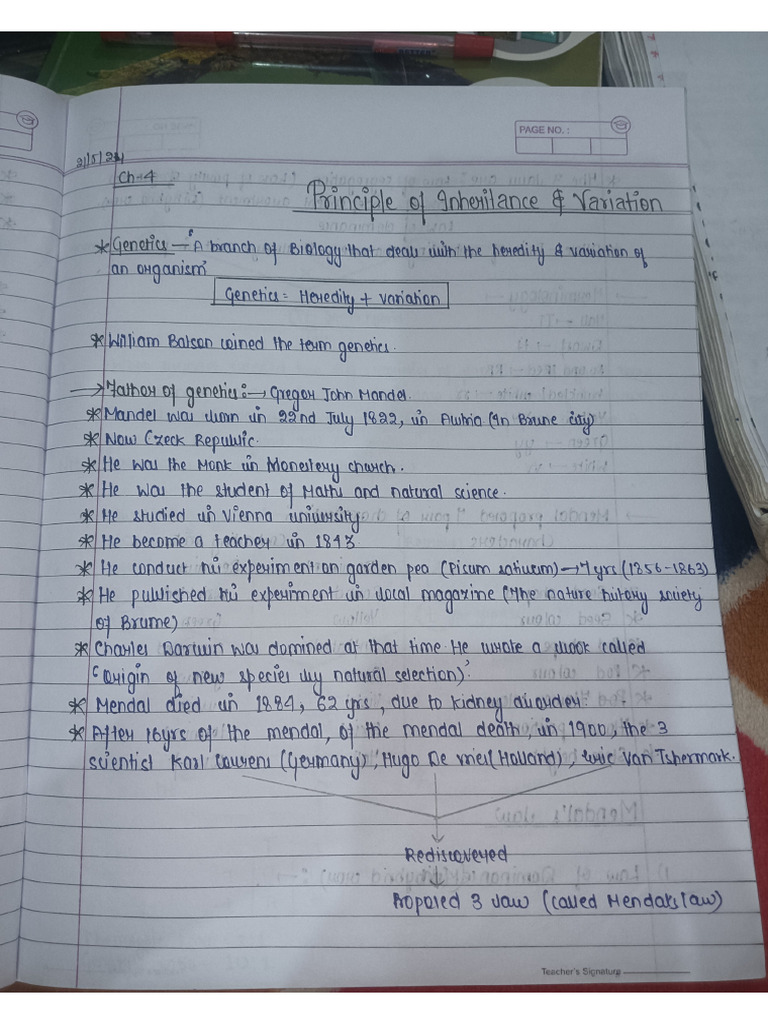 PAGE NO. :
2/5/24
Ch-4
Principle of Inheritance & Variation
* Genetics → A branch of Biology that deals with the heredity & variation of
an organism
Genetics = Heredity + variation
* William Batson coined the term genetics.
→ Father of genetics :→ Gregor John Mandel.
* Mandel was born in 22nd July 1822, in Austria (In Brune city)
* Now Czeck Republic.
* He was the Monk in Monestery church.
* He was the student of Maths and natural science.
* He studied in Vienna university
* He become a teacher in 1843.
* He conduct his experiment on garden pea (Pisum sativum) → 7 yrs (1856-1863)
* He published his experiment in local magazine (The nature history society
of Brume)
* Charles Darwin was domined at that time. He wrote a book called
'(Origin of new species by natural selection)'.
* Mendal died in 1884, 62 yrs, due to kidney disorder.
* After 16yrs of the mendal, of the mendal death, in 1900, the 3
scientist Karl Correns (Germany), Hugo De vries (Holland), Eric Van Tshermark.
Rediscoveyed
Proposed 3 law (called Mendals law)
Teacher's Signature